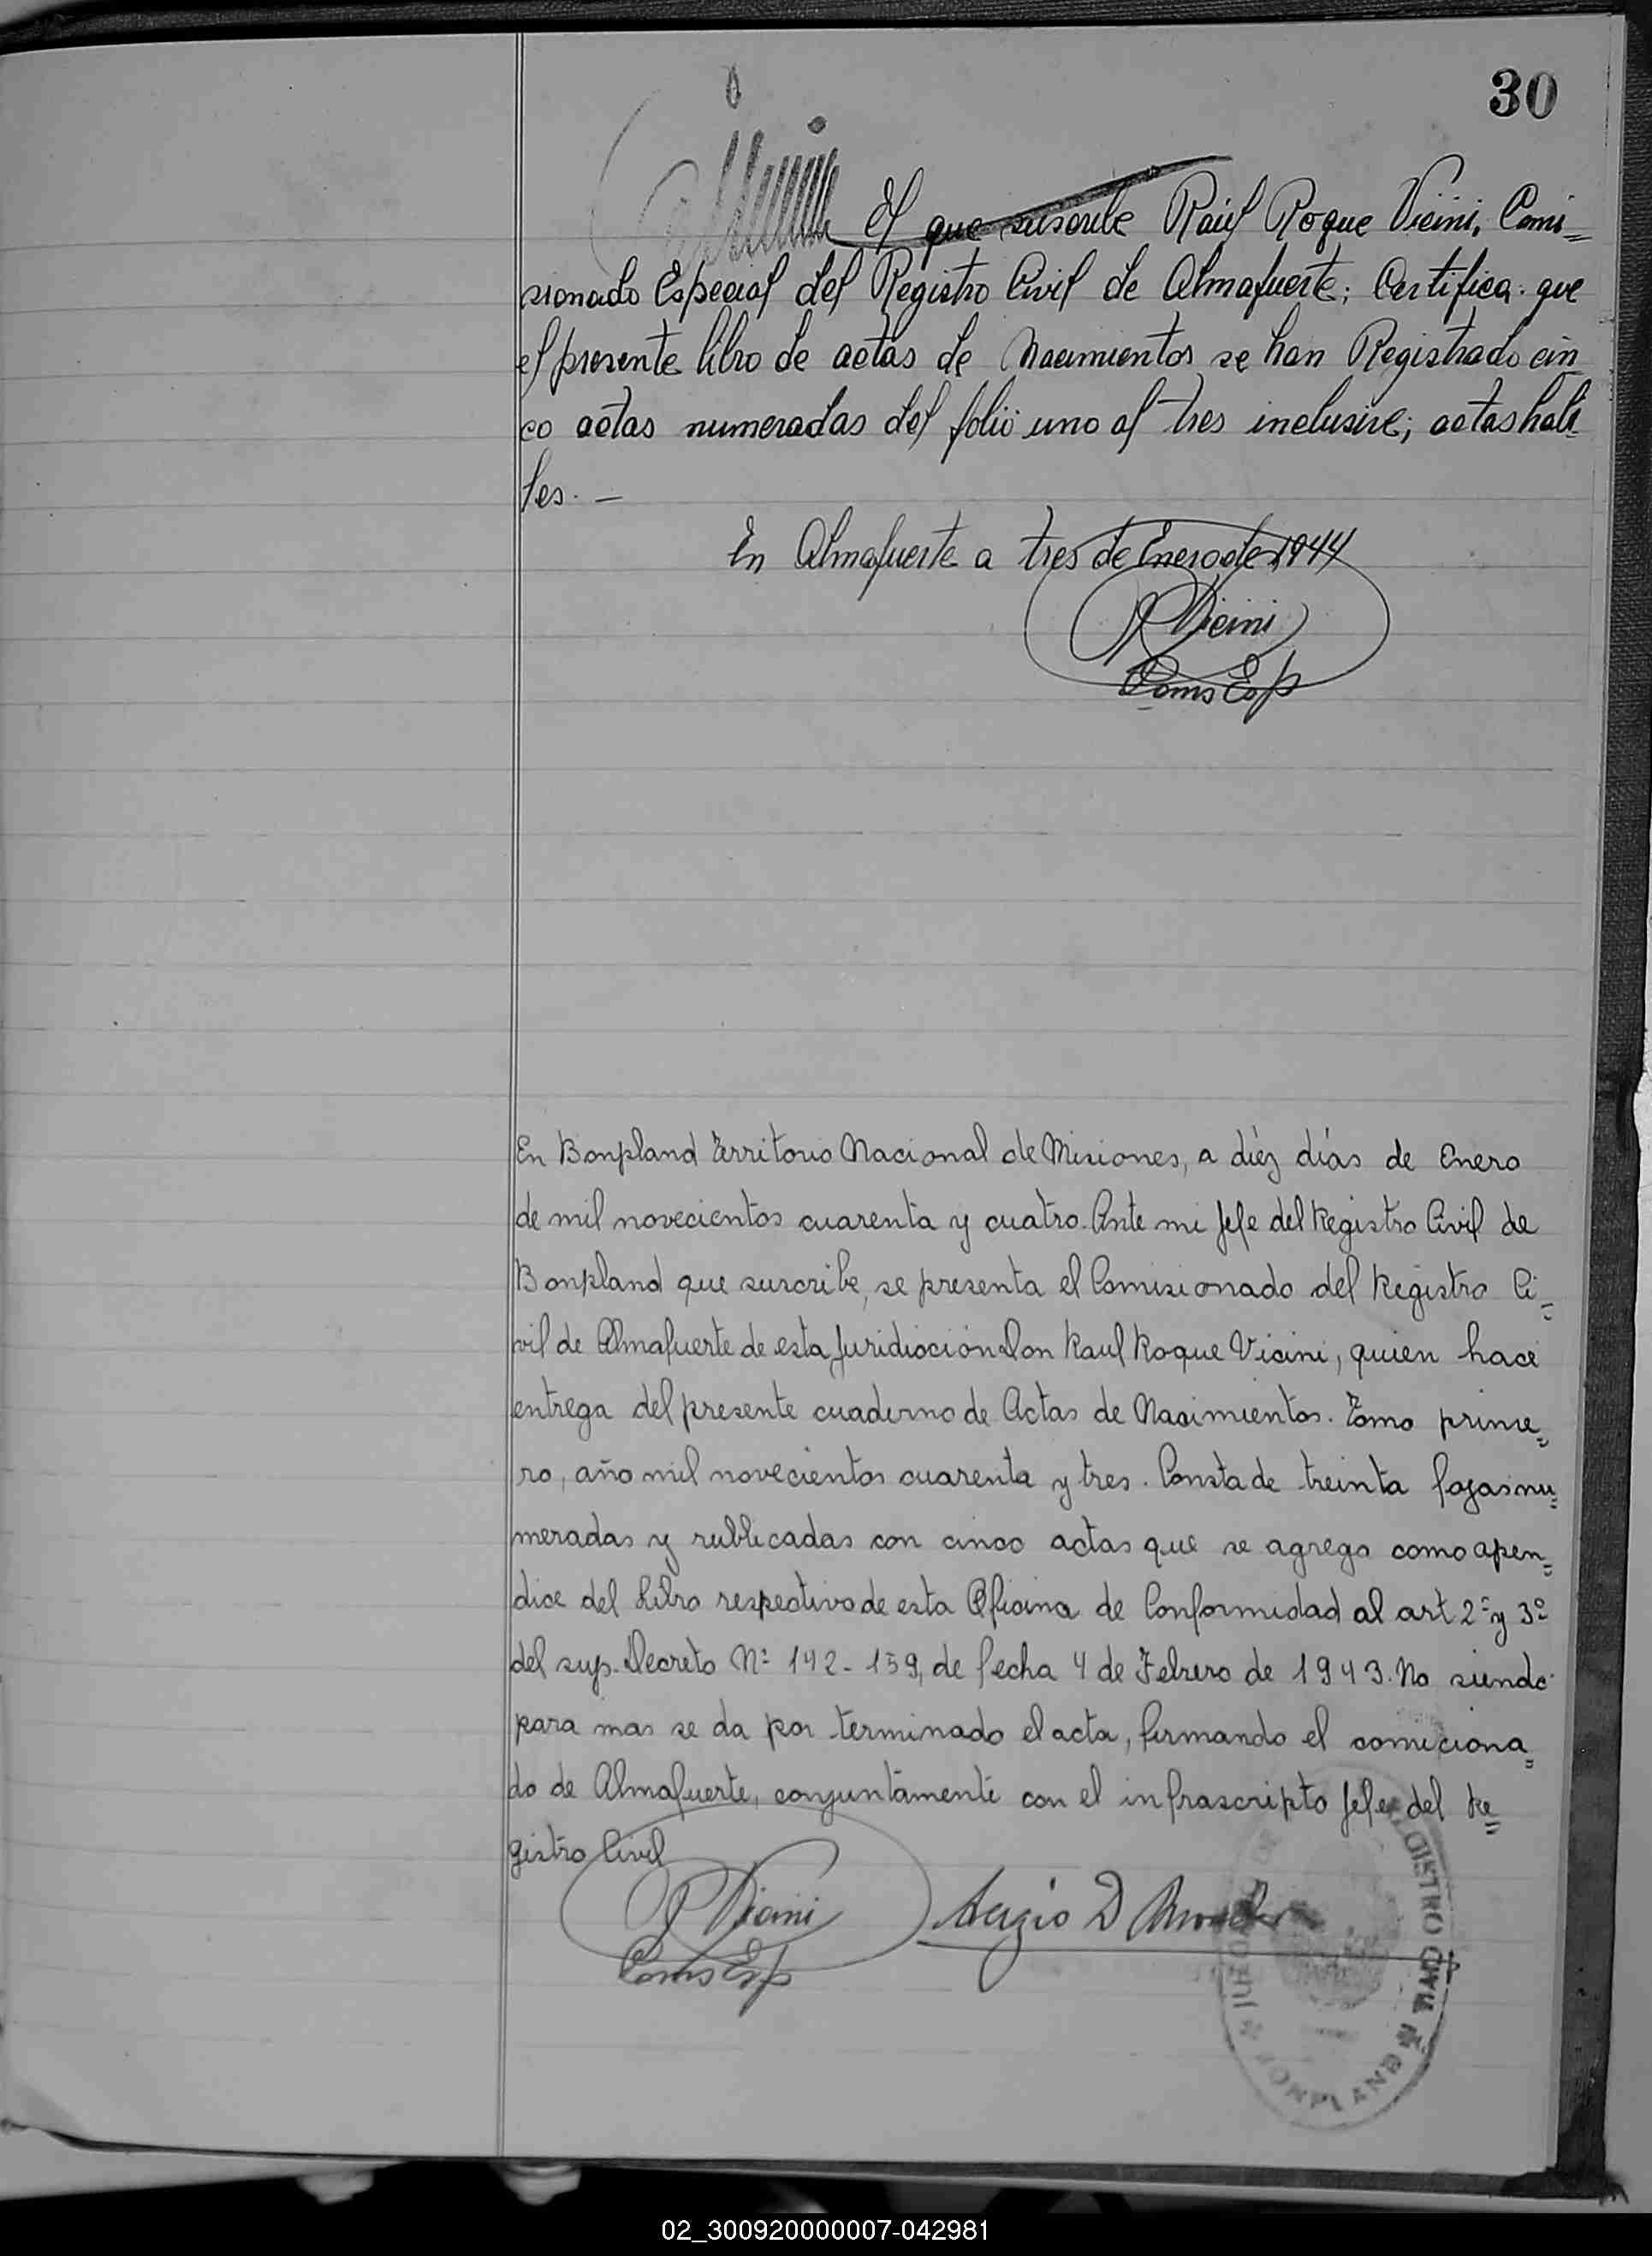 30
El que suscribe Raúl Roque Vicini, Comi=
sionado Especial del Registro Civil de Almafuerte; Certifica: que
el presente libro de actas de Nacimientos se han Registrado cin
co actas numeradas del folio uno al tres inclusive; actas habi
les. —
En Almafuerte a tres de Enero de 1944
R Vicini
Coms Esp
En Bonpland Territorio Nacional de Misiones, a diéz días de Enero
de mil novecientos cuarenta y cuatro. Ante mi Jefe del Registro Civil de
Bonpland que suscribe, se presenta el Comisionado del Registro Ci=
vil de Almafuerte de esta Juridiocion Don Raul Roque Vicini, quien hace
entrega del presente cuaderno de Actas de Nacimientos. Tomo prime=
ro, año mil novecientos cuarenta y tres. Consta de treinta fojas nu=
meradas y rublicadas con cinco actas que se agrega como apen=
dice del Libro respectivo de esta Oficina de Conformidad al art 2º y 3º
del sup. Decreto Nº 142-159, de fecha 4 de Febrero de 1943. No siendo
para mas se da por terminado el acta, firmando el comiciona=
do de Almafuerte, conjuntamente con el infrascripto Jefe del Re=
gistro Civil
R Vicini
Coms Esp
Sergio D
BONPLAND
02_300920000007-042981